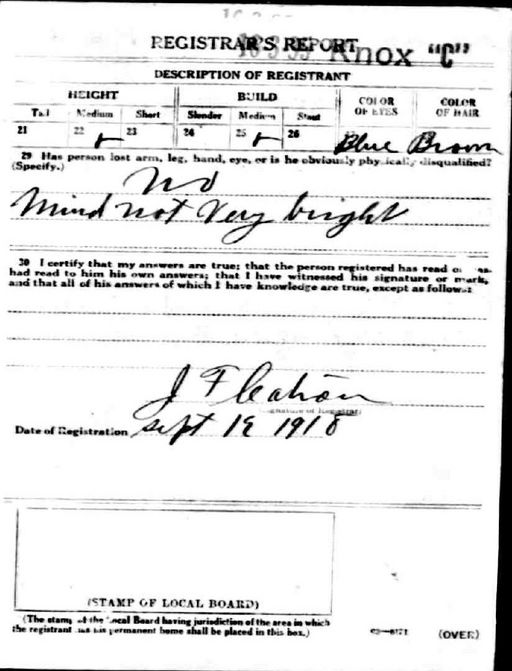 REGISTRAR'S REPORT
Knox "C"
DESCRIPTION OF REGISTRANT
HEIGHT BUILD COLOR OF EYES COLOR OF HAIR
Tall Medium Short Slender Medium Stout
21 22 23 24 25 26 Blue Brown
29 Has person lost arm, leg, hand, eye, or is he obviously physically disqualified?
(Specify.) No
Mind not very bright
30 I certify that my answers are true; that the person registered has read or has
had read to him his own answers; that I have witnessed his signature or mark,
and that all of his answers of which I have knowledge are true, except as follows:
J F
Signature of Registrar
Date of Registration Sept 12 1918
(STAMP OF LOCAL BOARD)
(The stamp of the Local Board having jurisdiction of the area in which
the registrant has his permanent home shall be placed in this box.)
(OVER)